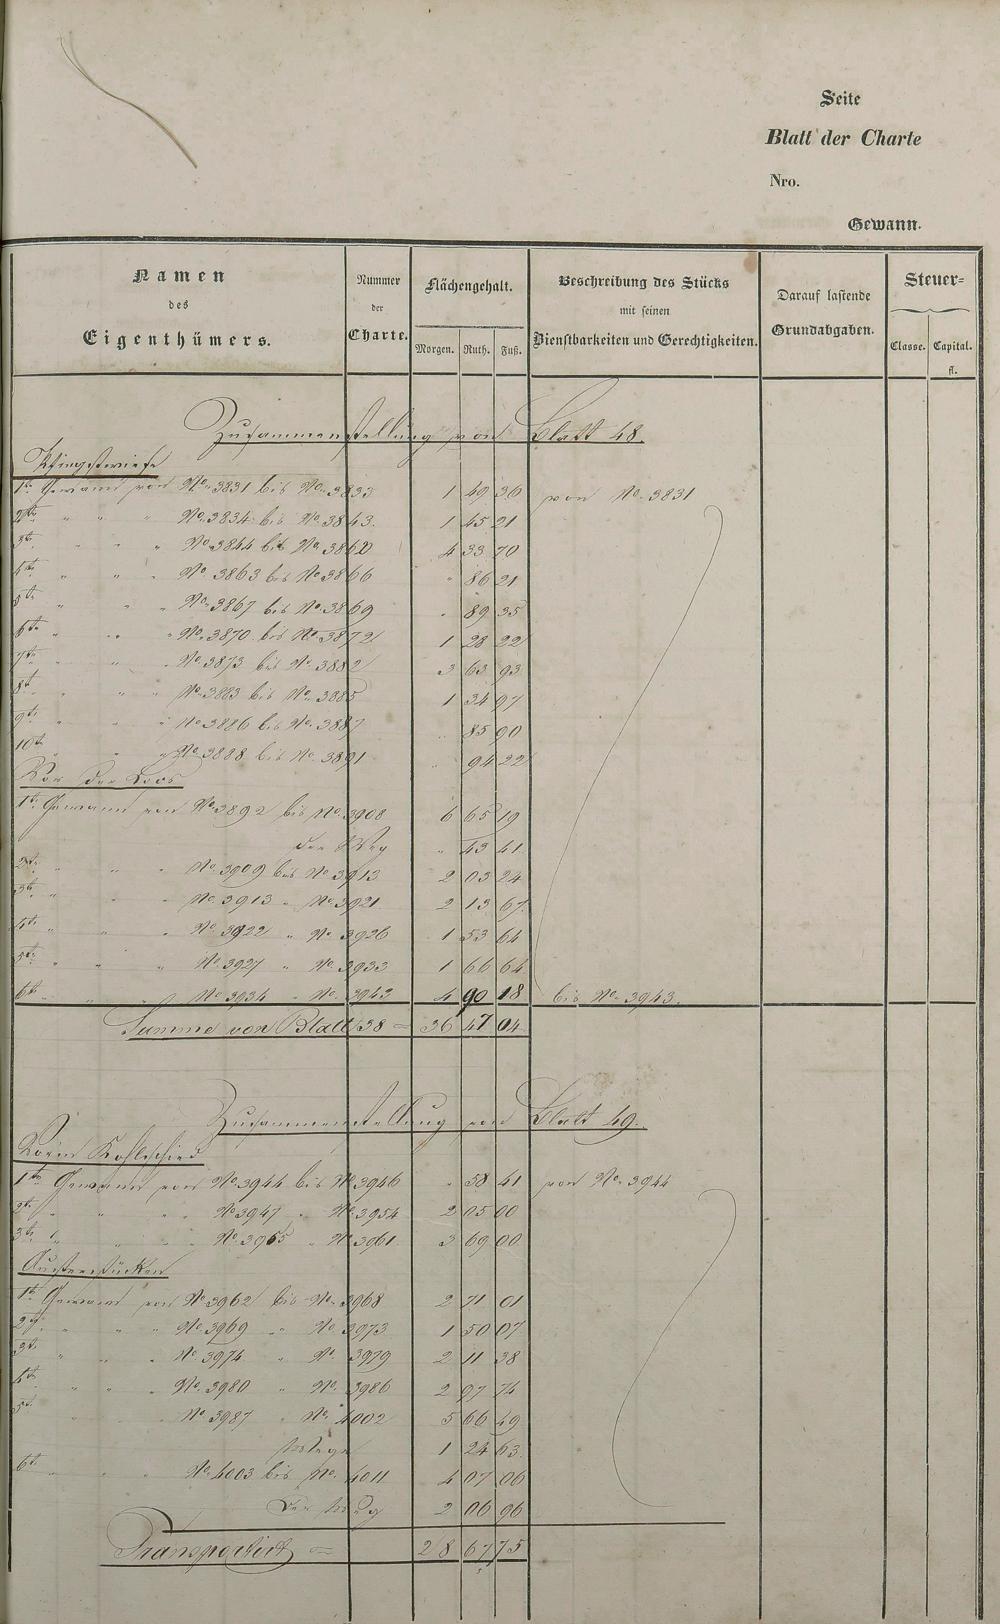 Seite
Blatt der Charte
Nro.
Gewann.
Namen des Eigenthümers.
Nummer der Charte.
Flächengehalt.
Morgen. Ruth. Fuß.
Beschreibung des Stücks mit seinen Dienstbarkeiten und Gerechtigkeiten.
Darauf lastende Grundabgaben.
Steuer=
Classe. Capital. fl.
Zusammenstellung von Blatt 48.
1te Gewann von No. 3831 bis No. 3833 1 49 36 von No. 3831
2te " " " No. 3834 bis No. 3843. 1 45 21
3te " " " No. 3844 bis No. 3862 4 33 70
4te " " " No. 3863 bis No. 3866 " 86 21
5te " " " No. 3867 bis No. 3869 " 89 35
6te " " " No. 3870 bis No. 3872 1 28 22
7te " " " No. 3873 bis No. 3882 3 63 93
8te " " " No. 3883 bis No. 3885 1 34 97
9te " " " No. 3886 bis No. 3887 " 85 90
10te " " " No. 3888 bis No. 3891 " 94 22
Vor der Loos
1te Gewann von No. 3892 bis No. 3908 6 65 19
der Weg " 43 41
2te " " " No. 3909 bis No. 3913 2 03 24
3te " " " No. 3913 " No. 3921 2 13 67
4te " " " No. 3922 " No. 3926 1 53 64
5te " " " No. 3927 " No. 3933 1 66 64
6te " " " No. 3934 " No. 3943 4 90 18 bis No. 3943.
Summe von Blatt 38 = 36 47 04
Zusammenstellung von Blatt 49.
1te Gewann von No. 3944 bis No. 3946 " 58 41 von No. 3944
2te " " " No. 3947 " No. 3954 2 05 00
3te " " " No. 3955 " No. 3961 3 69 00
1te Gewann von No. 3962 bis No. 3968 2 71 01
2te " " " No. 3969 " No. 3973 1 50 07
3te " " " No. 3974 " No. 3979 2 11 38
4te " " " No. 3980 " No. 3986 2 97 74
5te " " " No. 3987 " No. 4002 5 66 49
Wege 1 24 63
6te " " " No. 4003 bis No. 4011 4 07 06
Der Weg 2 06 96
Transportirt = 28 67 75